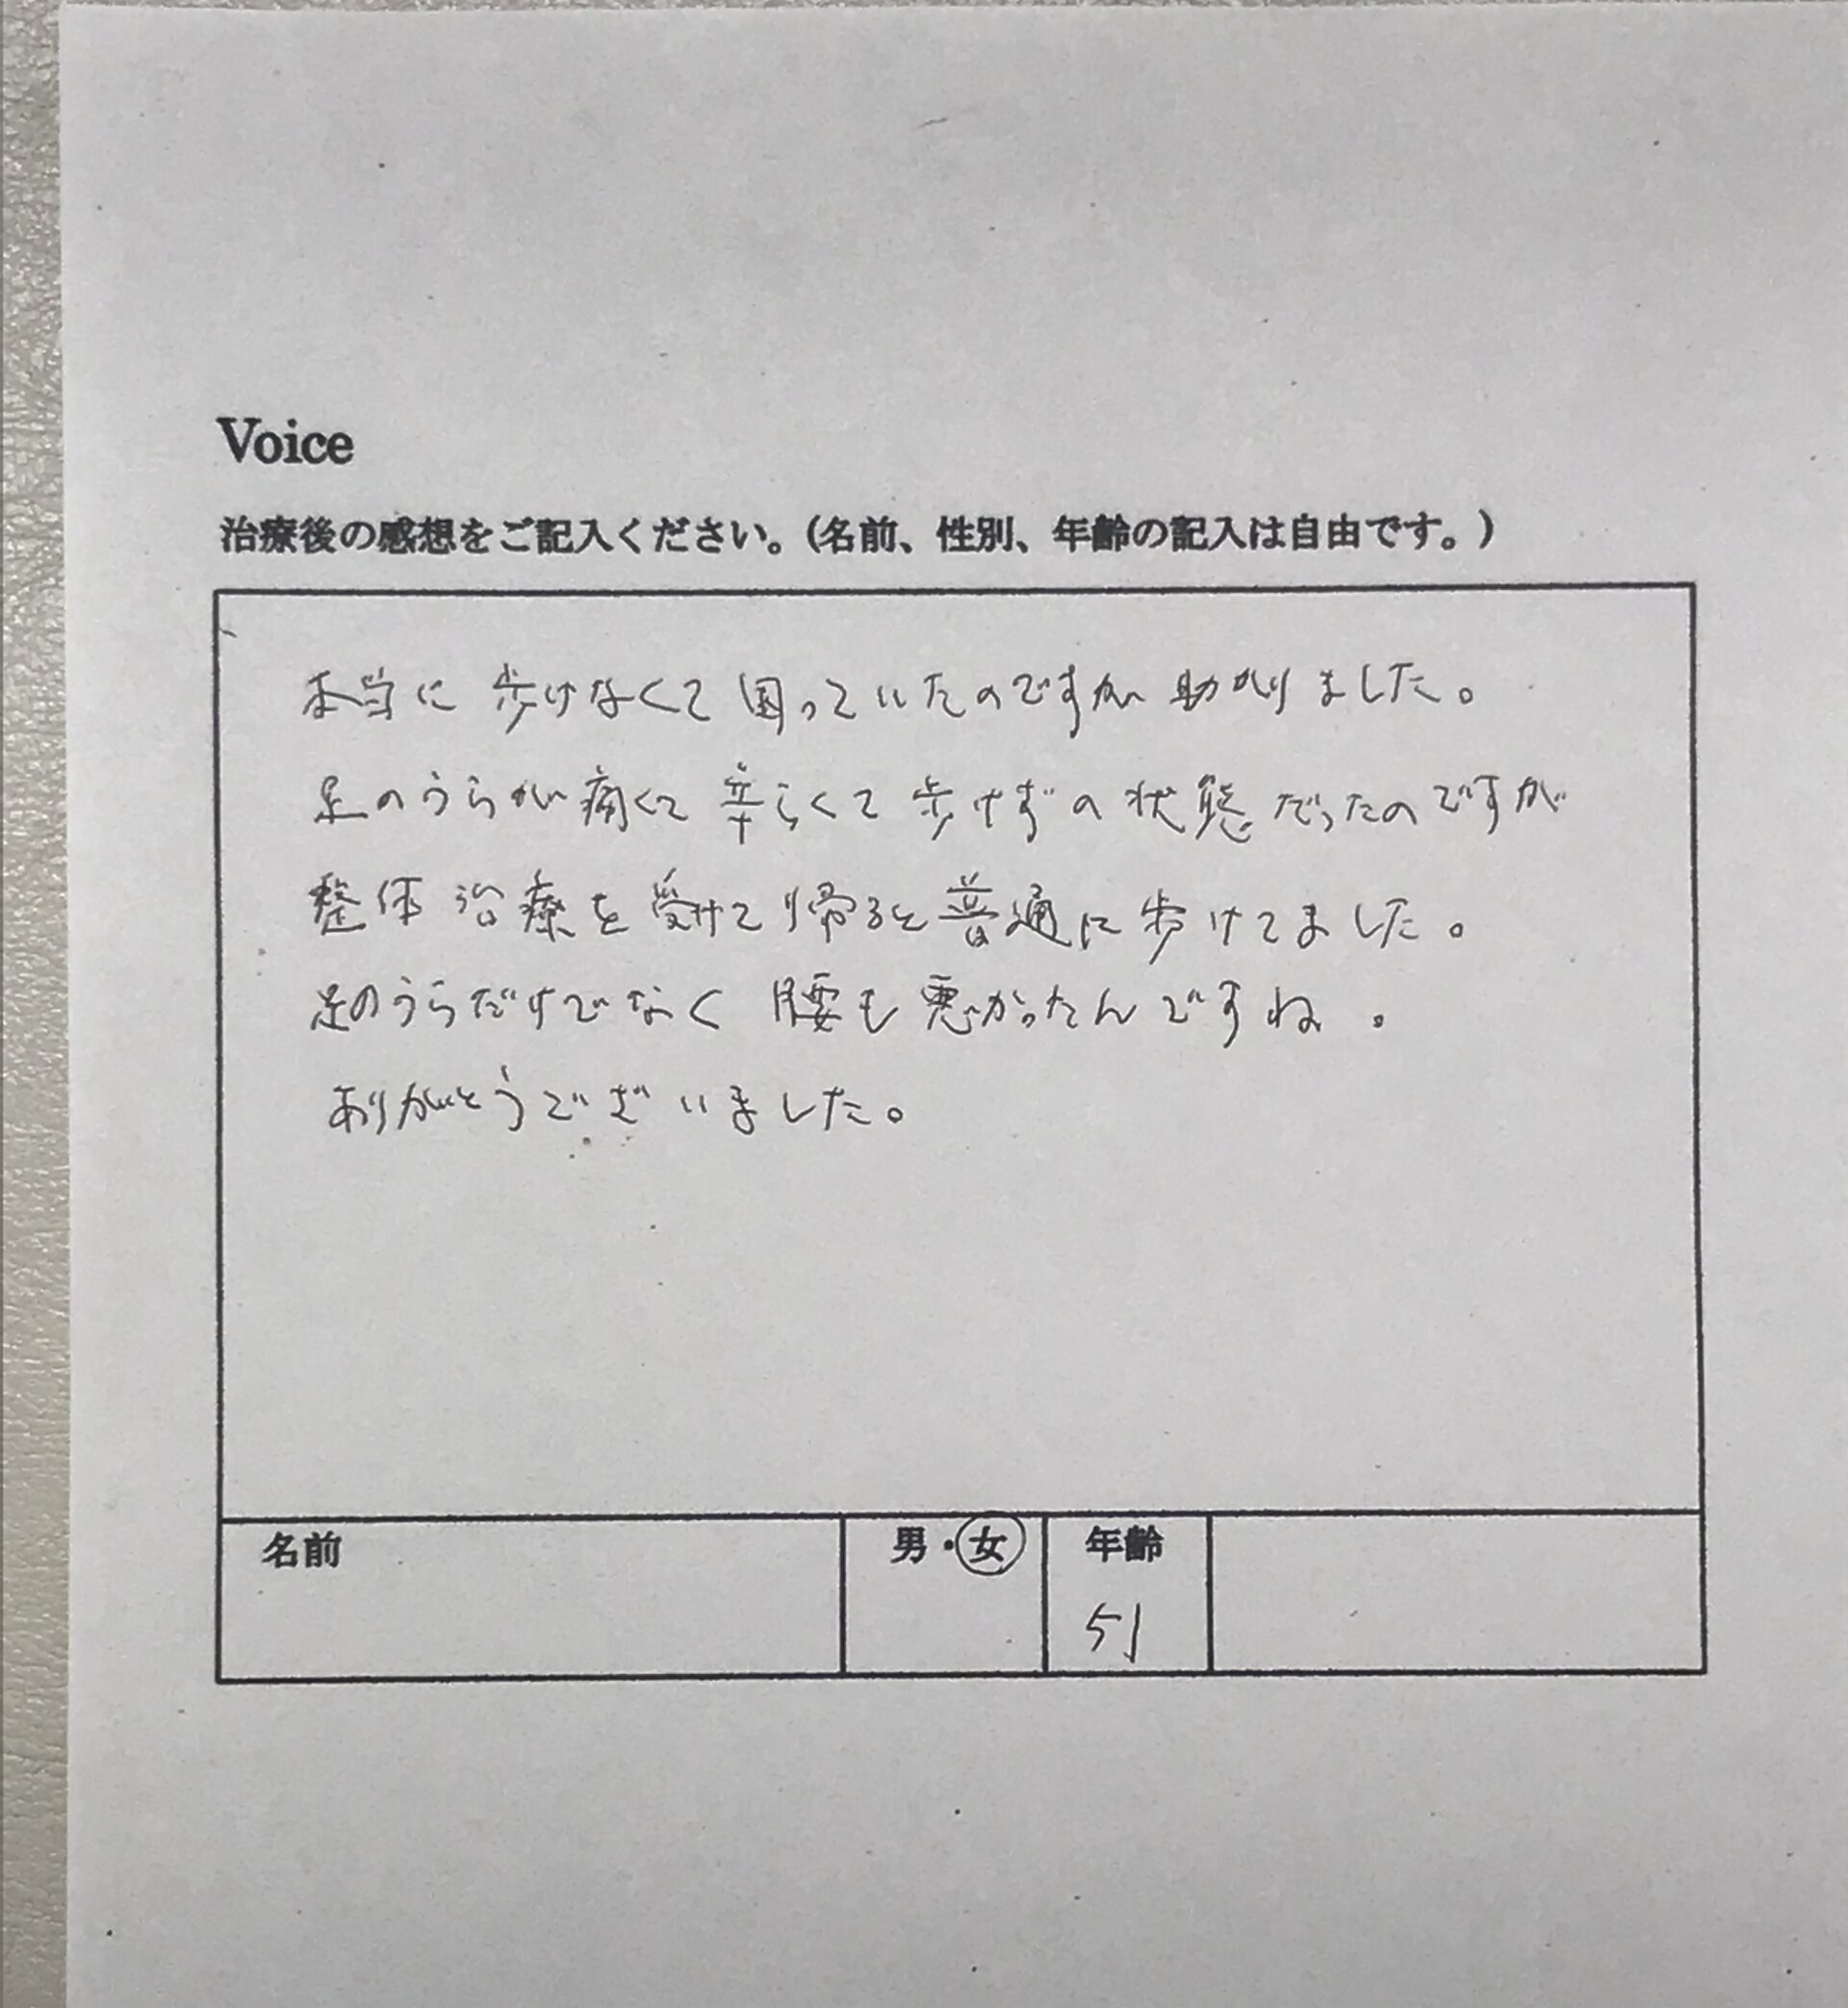 Voice
治療後の感想をご記入ください。(名前、性別、年齢の記入は自由です。)
本当に歩けなくて困っていたのですが助かりました。
足のうらが痛くて辛らくて歩けずの状態だったのですが
整体治療を受けて帰ると普通に歩けてました。
足のうらだけでなく腰も悪かったんですね。
ありがとうございました。
名前 男・女 年齢
51